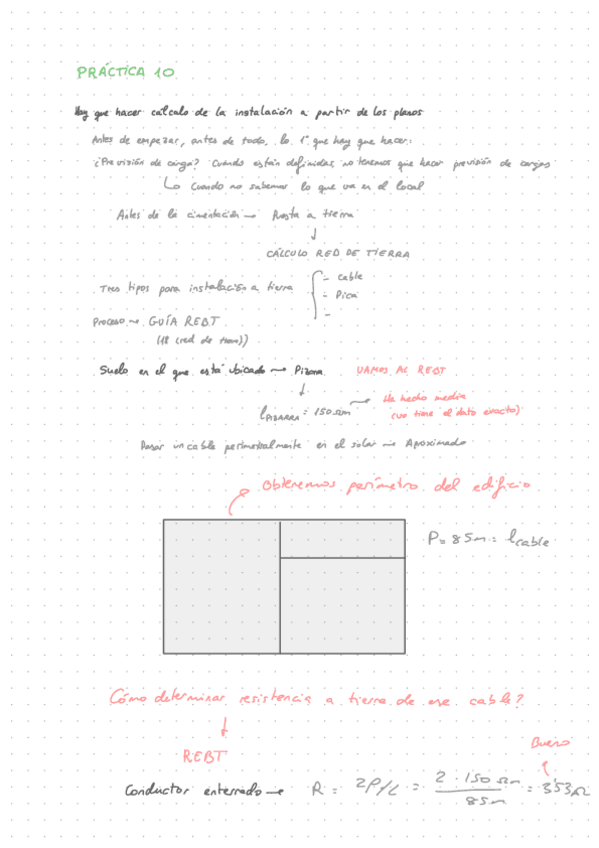 PRÁCTICA 10
Hay que hacer cálculo de la instalación a partir de los planos
Antes de empezar, antes de todo, lo 1º que hay que hacer:
¿Previsión de carga? Cuando están definidas no tenemos que hacer previsión de cargas
Cuando no sabemos lo que va en el local
Antes de la cimentación → Puesta a tierra
CÁLCULO RED DE TIERRA
Tres tipos para instalación a tierra
- Cable
- Pica
-
Proceso → GUÍA REBT
(18 (red de tierra))
Suelo en el que está ubicado → Pizarra VAMOS AL REBT
ρPIZARRA = 150 Ωm → Ha hecho media
(no tiene el dato exacto)
Pasar un cable perimetralmente en el solar → Aproximado
Obtenemos perímetro del edificio
P = 85m = lcable
Cómo determinar resistencia a tierra de ese cable?
REBT
Bueno
Conductor enterrado → R = 2ρ/L = 2 · 150 Ωm / 85m = 3'53 Ω